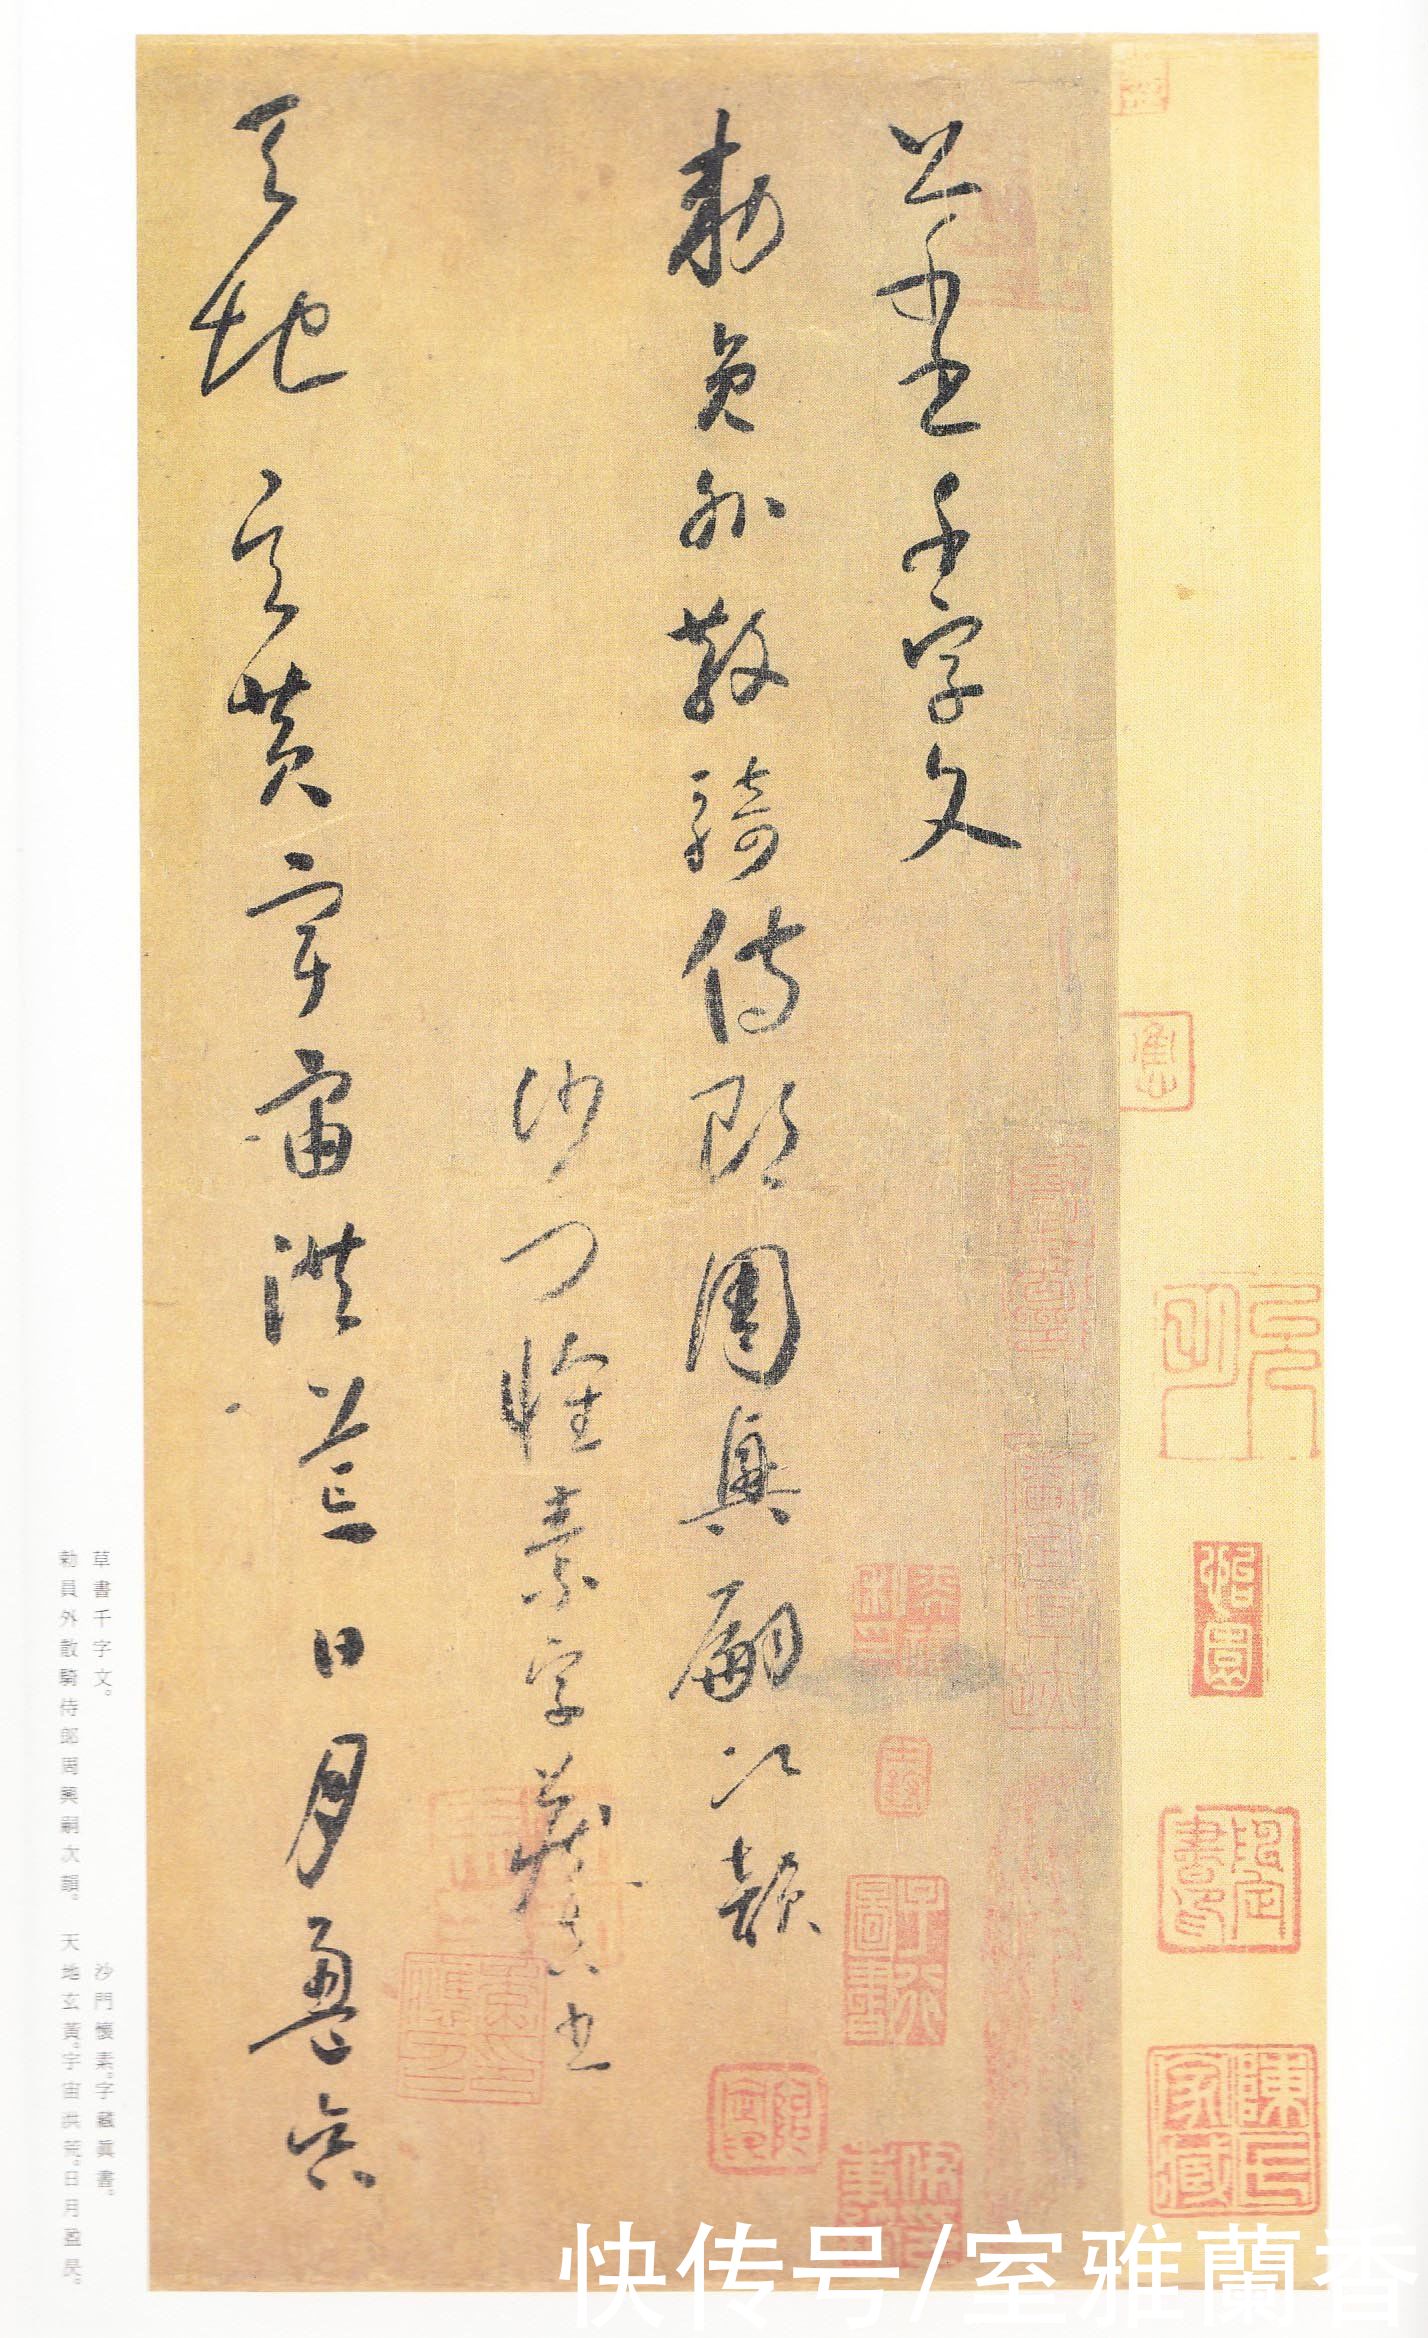 草書千字文
勅員外散騎侍郎周興嗣次韻
沙門懷素字藏真書
天地玄黃宇宙洪荒日月盈昃
草書千字文。 沙門懷素。字藏眞書。
勅員外散騎侍郎周興嗣次韻。 天地玄黃。宇宙洪荒。日月盈昃。
快传号/室雅蘭香